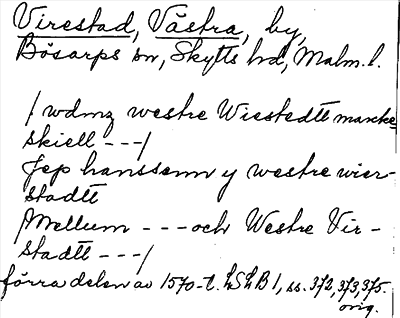 Virestad, Västra, by,
Bösarps sn, Skytts hd, Malm. l.
/ wdmz westre Wiestedtt marcke
skiell - - - /
Jep hanssenn y westre wier-
stadtt
/ Mellum - - - och Westre Vir-
stadtt - - - /
förra delen av 1570-t. LSLB 1, ss. 372, 373, 375.
orig.